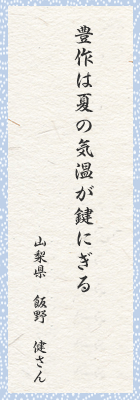 豊作は夏の気温が鍵にぎる
山梨県 飯野 健さん